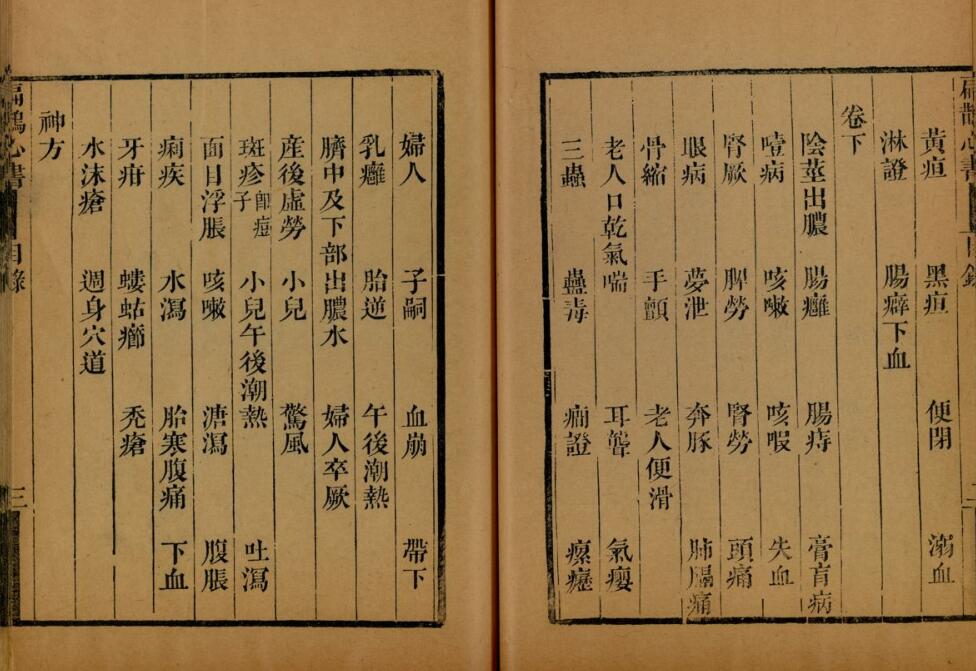 黃疸 黑疸 便閉 溺血
淋證 腸癖下血
卷下
陰莖出膿 腸癰 腸痔 膏肓病
噎病 咳嗽 咳暇 失血
腎厥 脾勞 腎勞 頭痛
眼病 夢泄 奔豚 肺膈痛
骨縮 手顫 老人便滑
老人口乾氣喘 耳聾 氣癭
三蟲 蠱毒 癇證 瘰癧
婦人 子嗣 血崩 帶下
乳癰 胎逆 午後潮熱
臍中及下部出膿水 婦人卒厥
產後虛勞 小兒 驚風
斑疹即痘子 小兒午後潮熱 吐瀉
面目浮脹 咳嗽 溏瀉 腹脹
痢疾 水瀉 胎寒腹痛 下血
牙疳 螻蛄癤 禿瘡
水沫瘡 週身穴道
神方
扁鵲心書 目錄 三